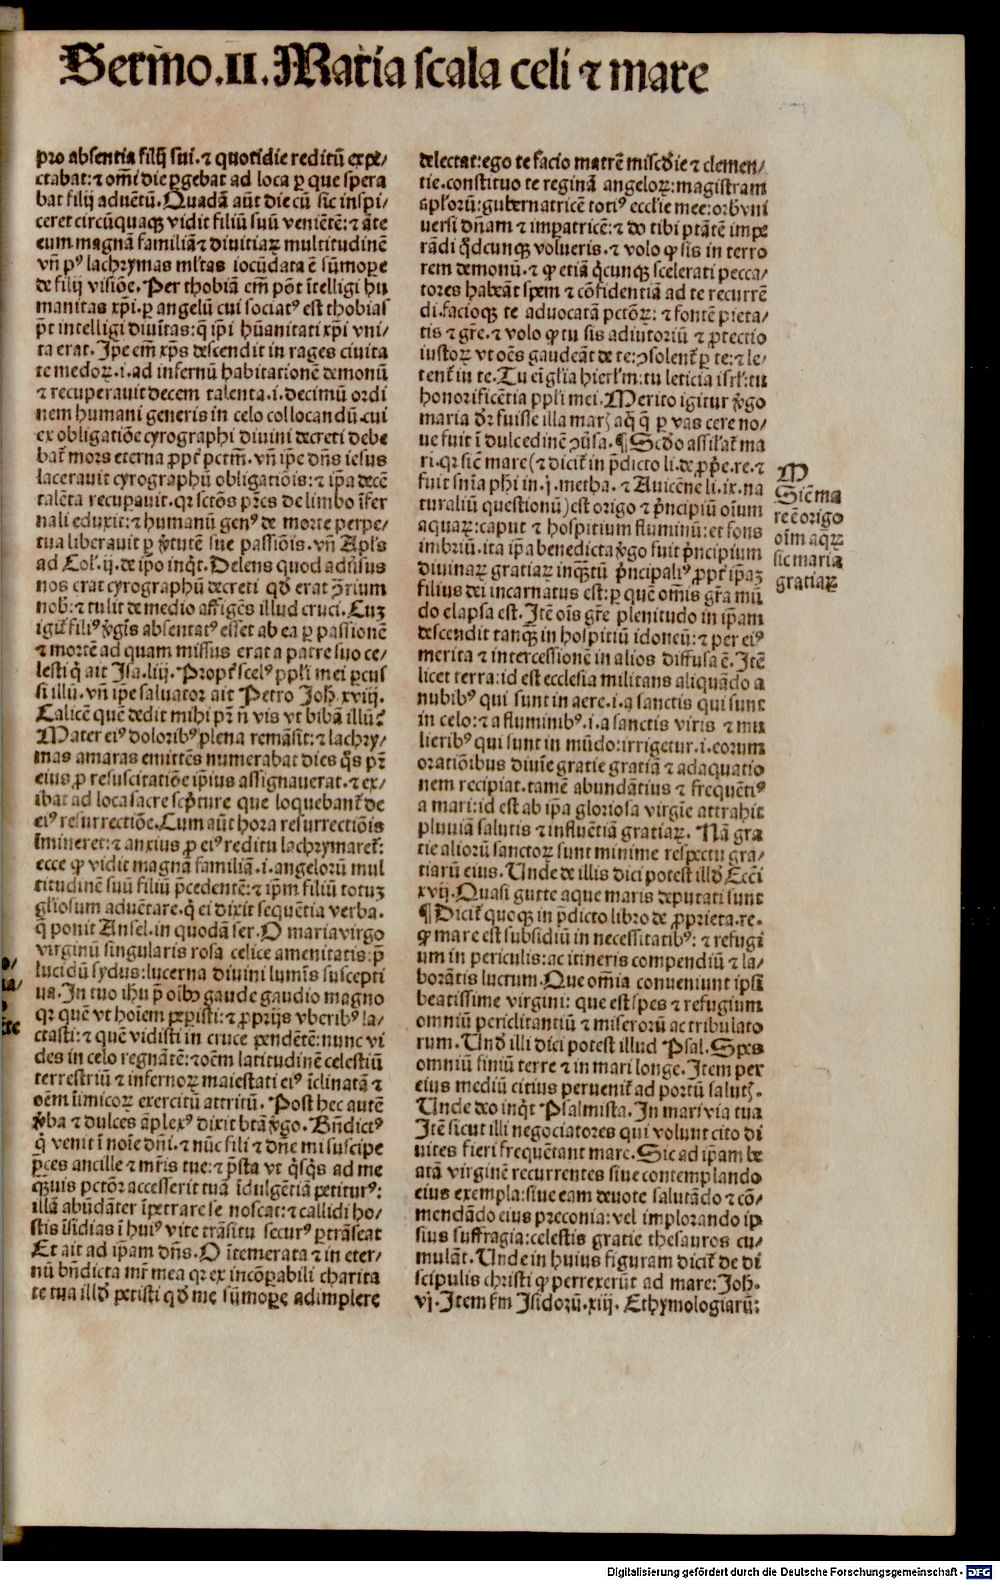 Sermo .II. Maria scala celi ⁊ mare
pro absentia filij sui. ⁊ quotidie reditū expe/
ctabat: ⁊ om̄i die ꝑgebat ad loca ꝑ que spera
bat filij aduētū. Quadā aūt die cū sic inspi/
ceret circūquaqꝫ vidit filiū suū veniētē: ⁊ āte
eum magnā familiā ⁊ diuitiaꝝ multitudinē
vn̄ pꝰ lachrymas ml̄tas iocūdata ē sūmope
de filij visiōe. Per thobiā em̄ pōt ītelligi hu
manitas xp̄i. ꝑ angelū cui sociatꝰ est thobias
pōt intelligi diuītas: q̄ ip̄i hūanitati xp̄i vni/
ta erat. Ip̄e em̄ xp̄s descendit in rages ciuita
te medoꝝ .i. ad infernū habitationē demonū
⁊ recuperauit decem talenta .i. decimū ordi
nem humani generis in celo collocandū. cui
ex obligatiōe cyrographi diuini decreti debe
bat̄ mors eterna ꝓpt̄ pctm̄. vn̄ ip̄e dn̄s iesus
lacerauit cyrographū obligatiōis: ⁊ ip̄a decē
talēta recupauit. qꝛ sctōs pr̄es de limbo īfer
nali eduxit: ⁊ humanū genꝰ de morte perpe/
tua liberauit ꝑ ꝟtutē sue passiōis. vn̄ Apl̄s
ad Col. ij. de ip̄o inqͥt. Delens quod aduīsus
nos erat cyrographū decreti qd̄ erat ꝯrium
nob̄: ⁊ tulit de medio affigēs illud cruci. Cuꝫ
igit̄ filiꝰ ꝟgīs absentatꝰ esset ab ea ꝑ passionē
⁊ mortē ad quam missus erat a patre suo ce/
lesti q̄ ait Isa. liij. Propt̄ scelꝰ ppl̄i mei percus
si illū. vn̄ ip̄e saluator ait Petro Joh. xviij.
Calicē quē dedit mihi pr̄ n̄ vis vt bibā illū?
Mater eiꝰ doloribꝰ plena remāsit: ⁊ lachry/
mas amaras emittēs numerabat dies qͦs pr̄
eius ꝓ resuscitatiōe ip̄ius assignauerat. ⁊ ex/
ibat ad loca sacre scp̄ture que loquebant̄ de
eiꝰ resurrectiōe. Cum aūt hora resurrectiōis
īmineret: ⁊ anxius ꝓ eiꝰ reditu lachrymaret̄:
ecce ꝙ vidit magnā familiā .i. angelorū mul
titudinē suū filiū p̄cedentē: ⁊ ip̄m filiū totuꝫ
gl̄iosum aduētare. q̄ ei dixit sequētia verba.
q̄ ponit Ansel. in quodā ser. O maria virgo
virginū singularis rosa celice amenitatis: p̄
lucidū sydus: lucerna diuini lumīs suscepti
ua. In tuo ihū p̄ oībꝰ gaude gaudio magno
qꝛ quē vt hoīem peꝑisti: ⁊ ꝓprijs vberibꝰ la/
ctasti: ⁊ quē vidisti in cruce pendētē: nunc vi
des in celo regnātē: ⁊ oēm latitudinē celestiū
terrestriū ⁊ infernoꝝ maiestati eiꝰ īclinatā ⁊
oēm īimicoꝝ exercitū attritū. Post hec autē
ꝟba ⁊ dulces āplexꝰ dixit btā ꝟgo. Bn̄dictꝰ
q̄ venit ī noīe dn̄i. ⁊ nūc fili ⁊ dn̄e mi suscipe
p̄ces ancille ⁊ mr̄is tue: ⁊ p̄sta vt qͥsqͥs ad me
qͣꝫuis pctōr accesserit tuā īdulgētiā petiturꝰ:
illā abūdāter īpetrare se noscat: ⁊ callidi ho/
stis īsidias ī huiꝰ vite trāsitu securꝰ ꝑtrāseat
Et ait ad ip̄am dn̄s. O ītemerata ⁊ in eter/
nū bn̄dicta mr̄ mea qꝛ ex incōꝑabili charita
te tua illd̄ petisti qd̄ me sūmope adimplere
delectat: ego te facio matrē misc̄die ⁊ clemen/
tie. constituo te reginā angeloꝝ: magistram
apl̄orū: gubernatricē totiꝰ ecclīe mee: orbꝰ vni
uersi dn̄am ⁊ imperatricē: ⁊ do tibi ptātē impe
rādi qd̄cunqꝫ volueris. ⁊ volo ꝙ sis in terro
rem demonū. ⁊ ꝙ etiā qͥcunqꝫ scelerati pecca/
tores habeāt spem ⁊ cōfidentiā ad te recurrē
di. facioqꝫ te aduocatā pctōꝝ: ⁊ fontē pieta/
tis ⁊ gr̄e. ⁊ volo ꝙ tu sis adiutoriū ⁊ ꝓtectio
iustoꝝ vt oēs gaudeāt de te: ꝯsolent̄ ꝑ te: ⁊ le/
tent̄ in te. Tu eī gl̄ia hierl̄m: tu leticia isrl̄: tu
honorificētia ppl̄i mei. Merito igitur ꝟgo
maria dr̄ fuisse illa mar̄ aqͣ q̄ ꝑ vas cere no/
ue fuit ī dulcedinē ꝯūsa. ¶ Scd̄o assil̄at̄ ma
ri. qꝛ siē mare (⁊ dicit̄ in p̄dicto li. de ꝓpe. re. ⁊
fuit sn̄ia phi in .j. metha. ⁊ Auicēne li. ix. na
turaliū questionū) est origo ⁊ p̄ncipiū oīum
aquaꝝ: caput ⁊ hospitium fluminū: et fons
imbriū. ita ip̄a benedicta ꝟgo fuit p̄ncipium
diuinaꝝ gratiaꝝ inqͣꝫtū p̄ncipaliꝰ ꝓpt̄ ip̄aꝫ
filius dei incarnatus est: ꝑ quē om̄is gr̄a mū
do elapsa est. Itē oīs gr̄e plenitudo in ip̄am
descendit tanqͣꝫ in hospitiū idoneū: ⁊ per eiꝰ
merita ⁊ intercessionē in alios diffusa ē. Itē
licet terra: id est ecclesia militans aliquādo a
nubibꝰ qui sunt in aere .i. a sanctis qui sunt
in celo: ⁊ a fluminibꝰ .i. a sanctis viris ⁊ mu
lieribꝰ qui sunt in mūdo: irrigetur .i. eorum
oratiōibus diuīe gratie gratiā ⁊ adaquatio
nem recipiat. tamē abundātius ⁊ frequētiꝰ
a mari: id est ab ip̄a gloriosa virgīe attrahit
pluuiā salutis ⁊ influētiā gratiaꝝ. Nā gra
tie aliorū sanctoꝝ sunt minime respectu gra/
tiarū eius. Unde de illis dici potest illd̄ Ecc̄i
xvij. Quasi gutte aque maris deputati sunt
¶ Dicit̄ quoqꝫ in p̄dicto libro de ꝓprieta. re.
ꝙ mare est subsidiū in necessitatibꝰ: ⁊ refugi
um in periculis: ac itineris compendiū ⁊ la/
borātis lucrum. Que om̄ia conueniunt ipsī
beatissime virgini: que est spes ⁊ refugium
omniū periclitantiū ⁊ miserorū ac tribulato
rum. Und̄ illi dici potest illud Psal. Spes
omniū finiū terre ⁊ in mari longe. Item per
eius mediū citius peruenit̄ ad portū salutꝭ.
Unde deo inqͥt Psalmista. In mari via tua
Itē sicut illi negociatores qui volunt cito di
uites fieri frequētant mare. Sic ad ip̄am be
atā virginē recurrentes siue contemplando
eius exempla: siue eam deuote salutādo ⁊ cō/
mendādo eius preconia: vel implorando ip
sius suffragia: celestis gratie thesauros cu/
mulāt. Unde in huius figuram dicit̄ de di
scipulis christi ꝙ perrexerūt ad mare: Joh.
vj. Item fm Isidorū .xiij. Ethymologiarū:
M
Siē ma
re ē origo
oīm aqͣꝝ
sic maria
gratiaꝝ
Digitalisierung gefördert durch die Deutsche Forschungsgemeinschaft - DFG